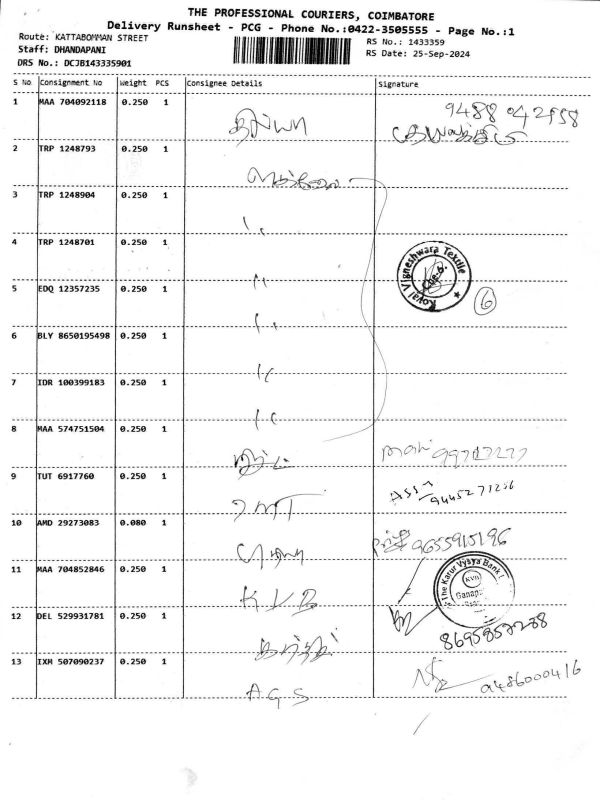 THE PROFESSIONAL COURIERS, COIMBATORE
Delivery Runsheet - PCG - Phone No.:0422-3505555 - Page No.:1
Route: KATTABOMMAN STREET
Staff: DHANDAPANI
DRS No.: DCJB143335901
RS No.: 1433359
RS Date: 25-Sep-2024
S No Consignment No Weight PCS Consignee Details Signature
1 MAA 704092118 0.250 1 திவ்யா
2 TRP 1248793 0.250 1
3 TRP 1248904 0.250 1 "
4 TRP 1248701 0.250 1 "
Royal Vigneshwara Textile
5 EDQ 12357235 0.250 1 " 6
6 BLY 8650195498 0.250 1 "
7 IDR 100399183 0.250 1 "
8 MAA 574751504 0.250 1
9 TUT 6917760 0.250 1
10 AMD 29273083 0.080 1 9655915196
11 MAA 704852846 0.250 1 KVB
The Karur Vysya Bank
KVB
12 DEL 529931781 0.250 1
13 IXM 507090237 0.250 1 AGS 9486000416